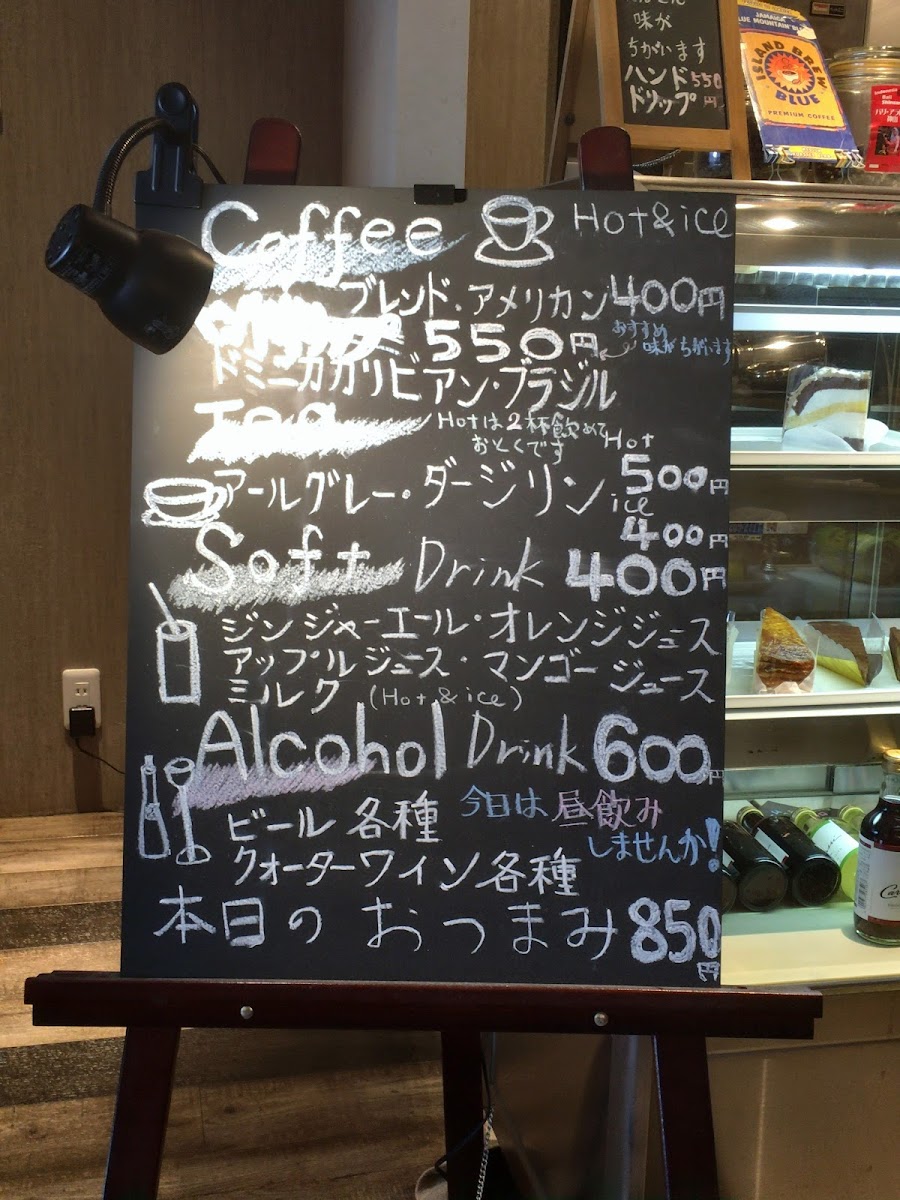 味が
ちがいます
ハンド 550
ドリップ 円
JAMAICA
BLUE MOUNTAIN BLEND
ISLAND BREW
BLUE
PREMIUM COFFEE
Coffee Hot&ice
ブレンド・アメリカン 400円
550円
おすすめ
味がちがいます
ドミニカカリビアン・ブラジル
Tea Hotは2杯飲めて
おとくです
Hot
アールグレー・ダージリン 500円
ice
400円
Soft Drink 400円
ジンジャーエール・オレンジジュース
アップルジュース・マンゴージュース
ミルク (Hot&ice)
Alcohol Drink 600円
ビール 各種 今日は昼飲み
しませんか!
クォーターワイン各種
本日のおつまみ 850円